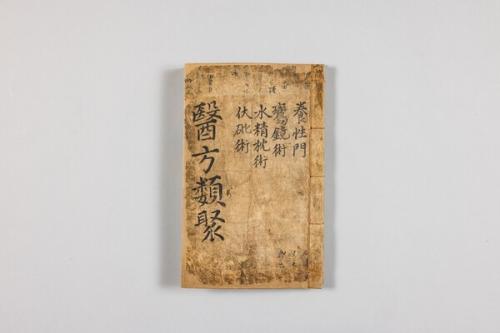 養性門
寶鏡術
水精枕術
伏砒術
醫方類聚